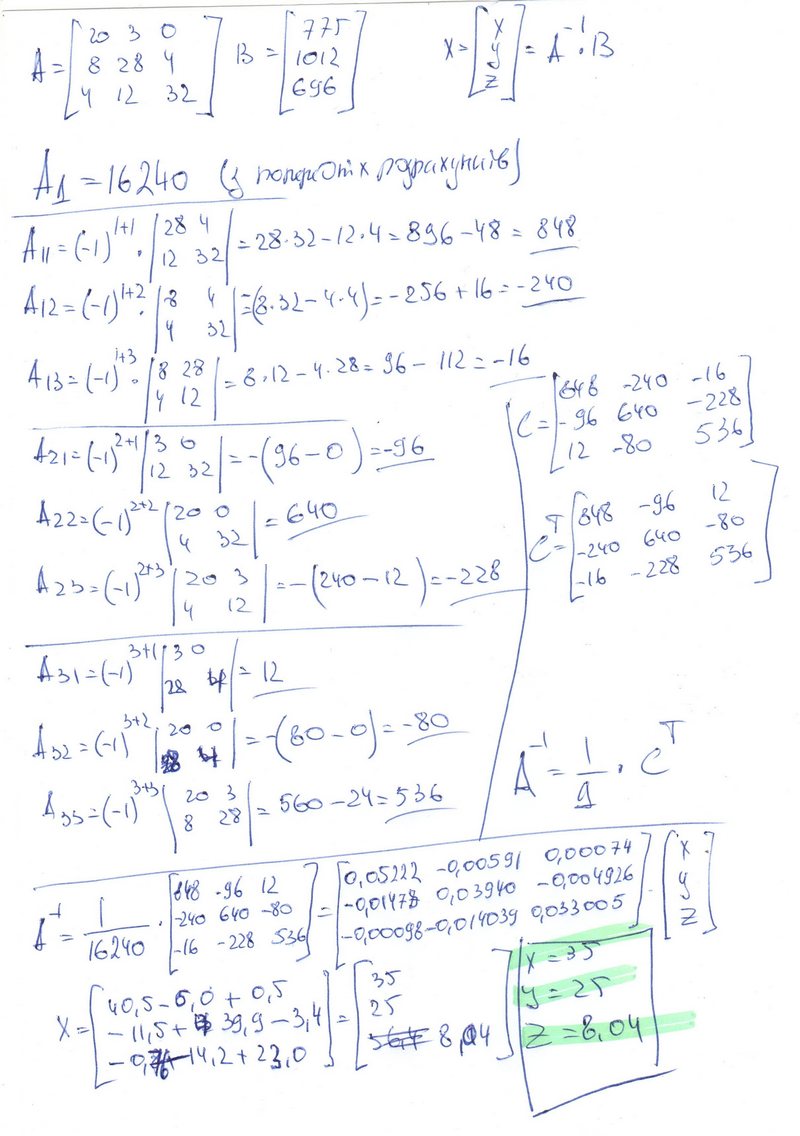 A = [20 3 0; 8 28 4; 4 12 32] B = [775; 1012; 696] X = [x; y; z] = A⁻¹·B
A₁ = 16240 (з попередніх розрахунків)
A11 = (-1)^1+1 · |28 4; 12 32| = 28·32 - 12·4 = 896 - 48 = 848
A12 = (-1)^1+2 · |8 4; 4 32| = -(8·32 - 4·4) = -256 + 16 = -240
A13 = (-1)^1+3 · |8 28; 4 12| = 8·12 - 4·28 = 96 - 112 = -16
A21 = (-1)^2+1 |3 0; 12 32| = -(96 - 0) = -96
A22 = (-1)^2+2 |20 0; 4 32| = 640
A23 = (-1)^2+3 |20 3; 4 12| = -(240 - 12) = -228
A31 = (-1)^3+1 |3 0; 28 4| = 12
A32 = (-1)^3+2 |20 0; 8 4| = -(80 - 0) = -80
A33 = (-1)^3+3 |20 3; 8 28| = 560 - 24 = 536
C = [848 -240 -16; -96 640 -228; 12 -80 536]
Cᵀ = [848 -96 12; -240 640 -80; -16 -228 536]
A⁻¹ = 1/д · Cᵀ
A⁻¹ = 1/16240 · [848 -96 12; -240 640 -80; -16 -228 536] = [0,05222 -0,00591 0,00074; -0,01478 0,03940 -0,004926; -0,00098 -0,014039 0,033005] · [x; y; z]
X = [40,5 - 6,0 + 0,5; -11,5 + 39,9 - 3,4; -0,76 - 14,2 + 23,0] = [35; 25; 8,04]
x = 35
y = 25
z = 8,04